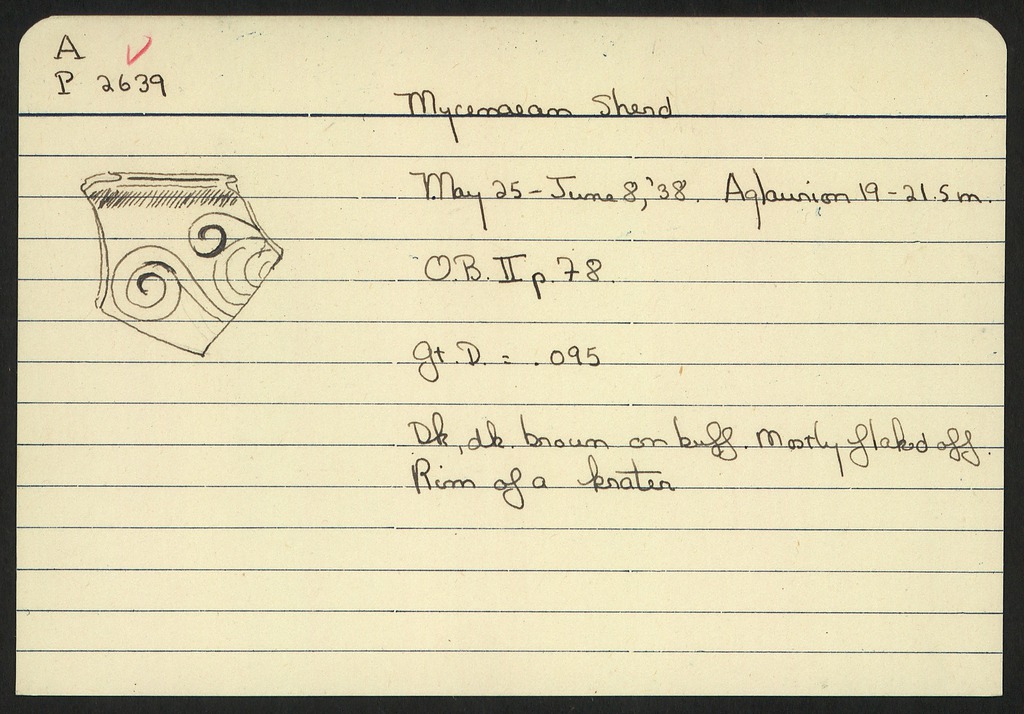 A
P 2639
Mycenaean Sherd
May 25 - June 8, '38. Aglaurion 19 - 21.5 m.
O.B. II p. 78.
Gt. D. = .095
Dk, dk. brown on buff. Mostly flaked off.
Rim of a krater